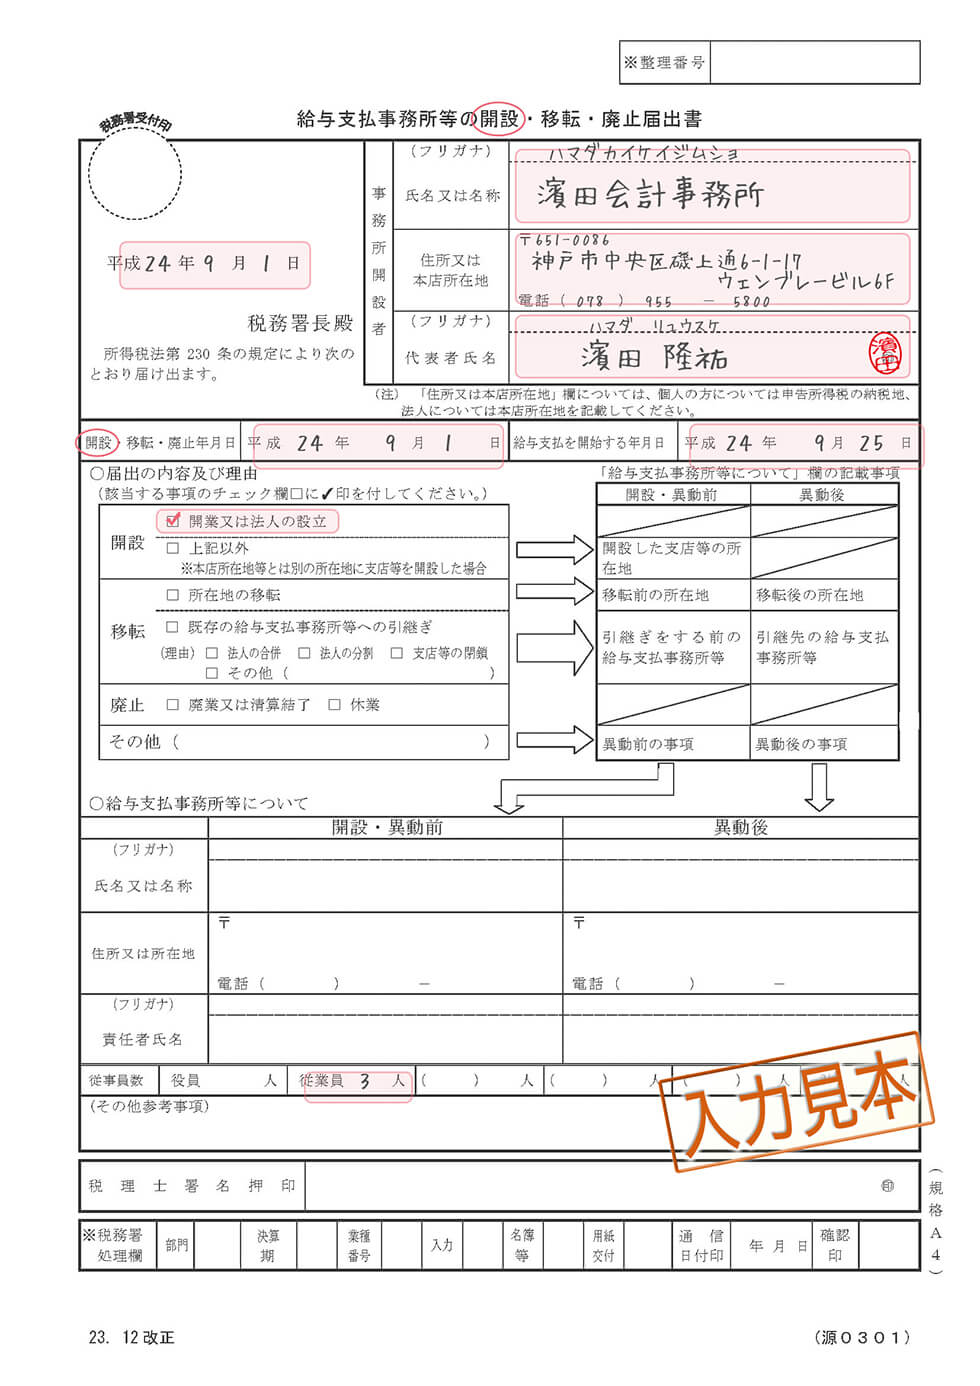 ※整理番号
税務署受付印
給与支払事務所等の開設・移転・廃止届出書
平成24年9月1日
税務署長殿
所得税法第230条の規定により次の
とおり届け出ます。
事務所開設者
(フリガナ) ハマダカイケイジムショ
氏名又は名称 濱田会計事務所
住所又は
本店所在地
〒651-0086
神戸市中央区磯上通6-1-17
ウェンブレービル6F
電話(078)955-5800
(フリガナ) ハマダ リュウスケ
代表者氏名 濱田 隆祐
濱田
(注) 「住所又は本店所在地」欄については、個人の方については申告所得税の納税地、
法人については本店所在地を記載してください。
開設・移転・廃止年月日 平成24年9月1日 給与支払を開始する年月日 平成24年9月25日
○届出の内容及び理由
(該当する事項のチェック欄□に✓印を付してください。)
「給与支払事務所等について」欄の記載事項
開設・異動前 異動後
開設
☑ 開業又は法人の設立
□ 上記以外
※本店所在地等とは別の所在地に支店等を開設した場合
開設した支店等の所
在地
移転
□ 所在地の移転
移転前の所在地 移転後の所在地
□ 既存の給与支払事務所等への引継ぎ
(理由) □ 法人の合併 □ 法人の分割 □ 支店等の閉鎖
□ その他( )
引継ぎをする前の
給与支払事務所等
引継先の給与支払
事務所等
廃止 □ 廃業又は清算結了 □ 休業
その他( )
異動前の事項 異動後の事項
○給与支払事務所等について
開設・異動前 異動後
(フリガナ)
氏名又は名称
住所又は所在地
〒 〒
電話( ) - 電話( ) -
(フリガナ)
責任者氏名
従事員数 役員 人 従業員 3 人 ( ) 人 ( ) 人 ( ) 人 人
(その他参考事項)
入力見本
税理士署名押印 ㊞
(規格A4)
※税務署
処理欄
部門
決算
期
業種
番号
入力
名簿
等
用紙
交付
通信
日付印
年月日
確認
印
23. 12改正
(源0301)